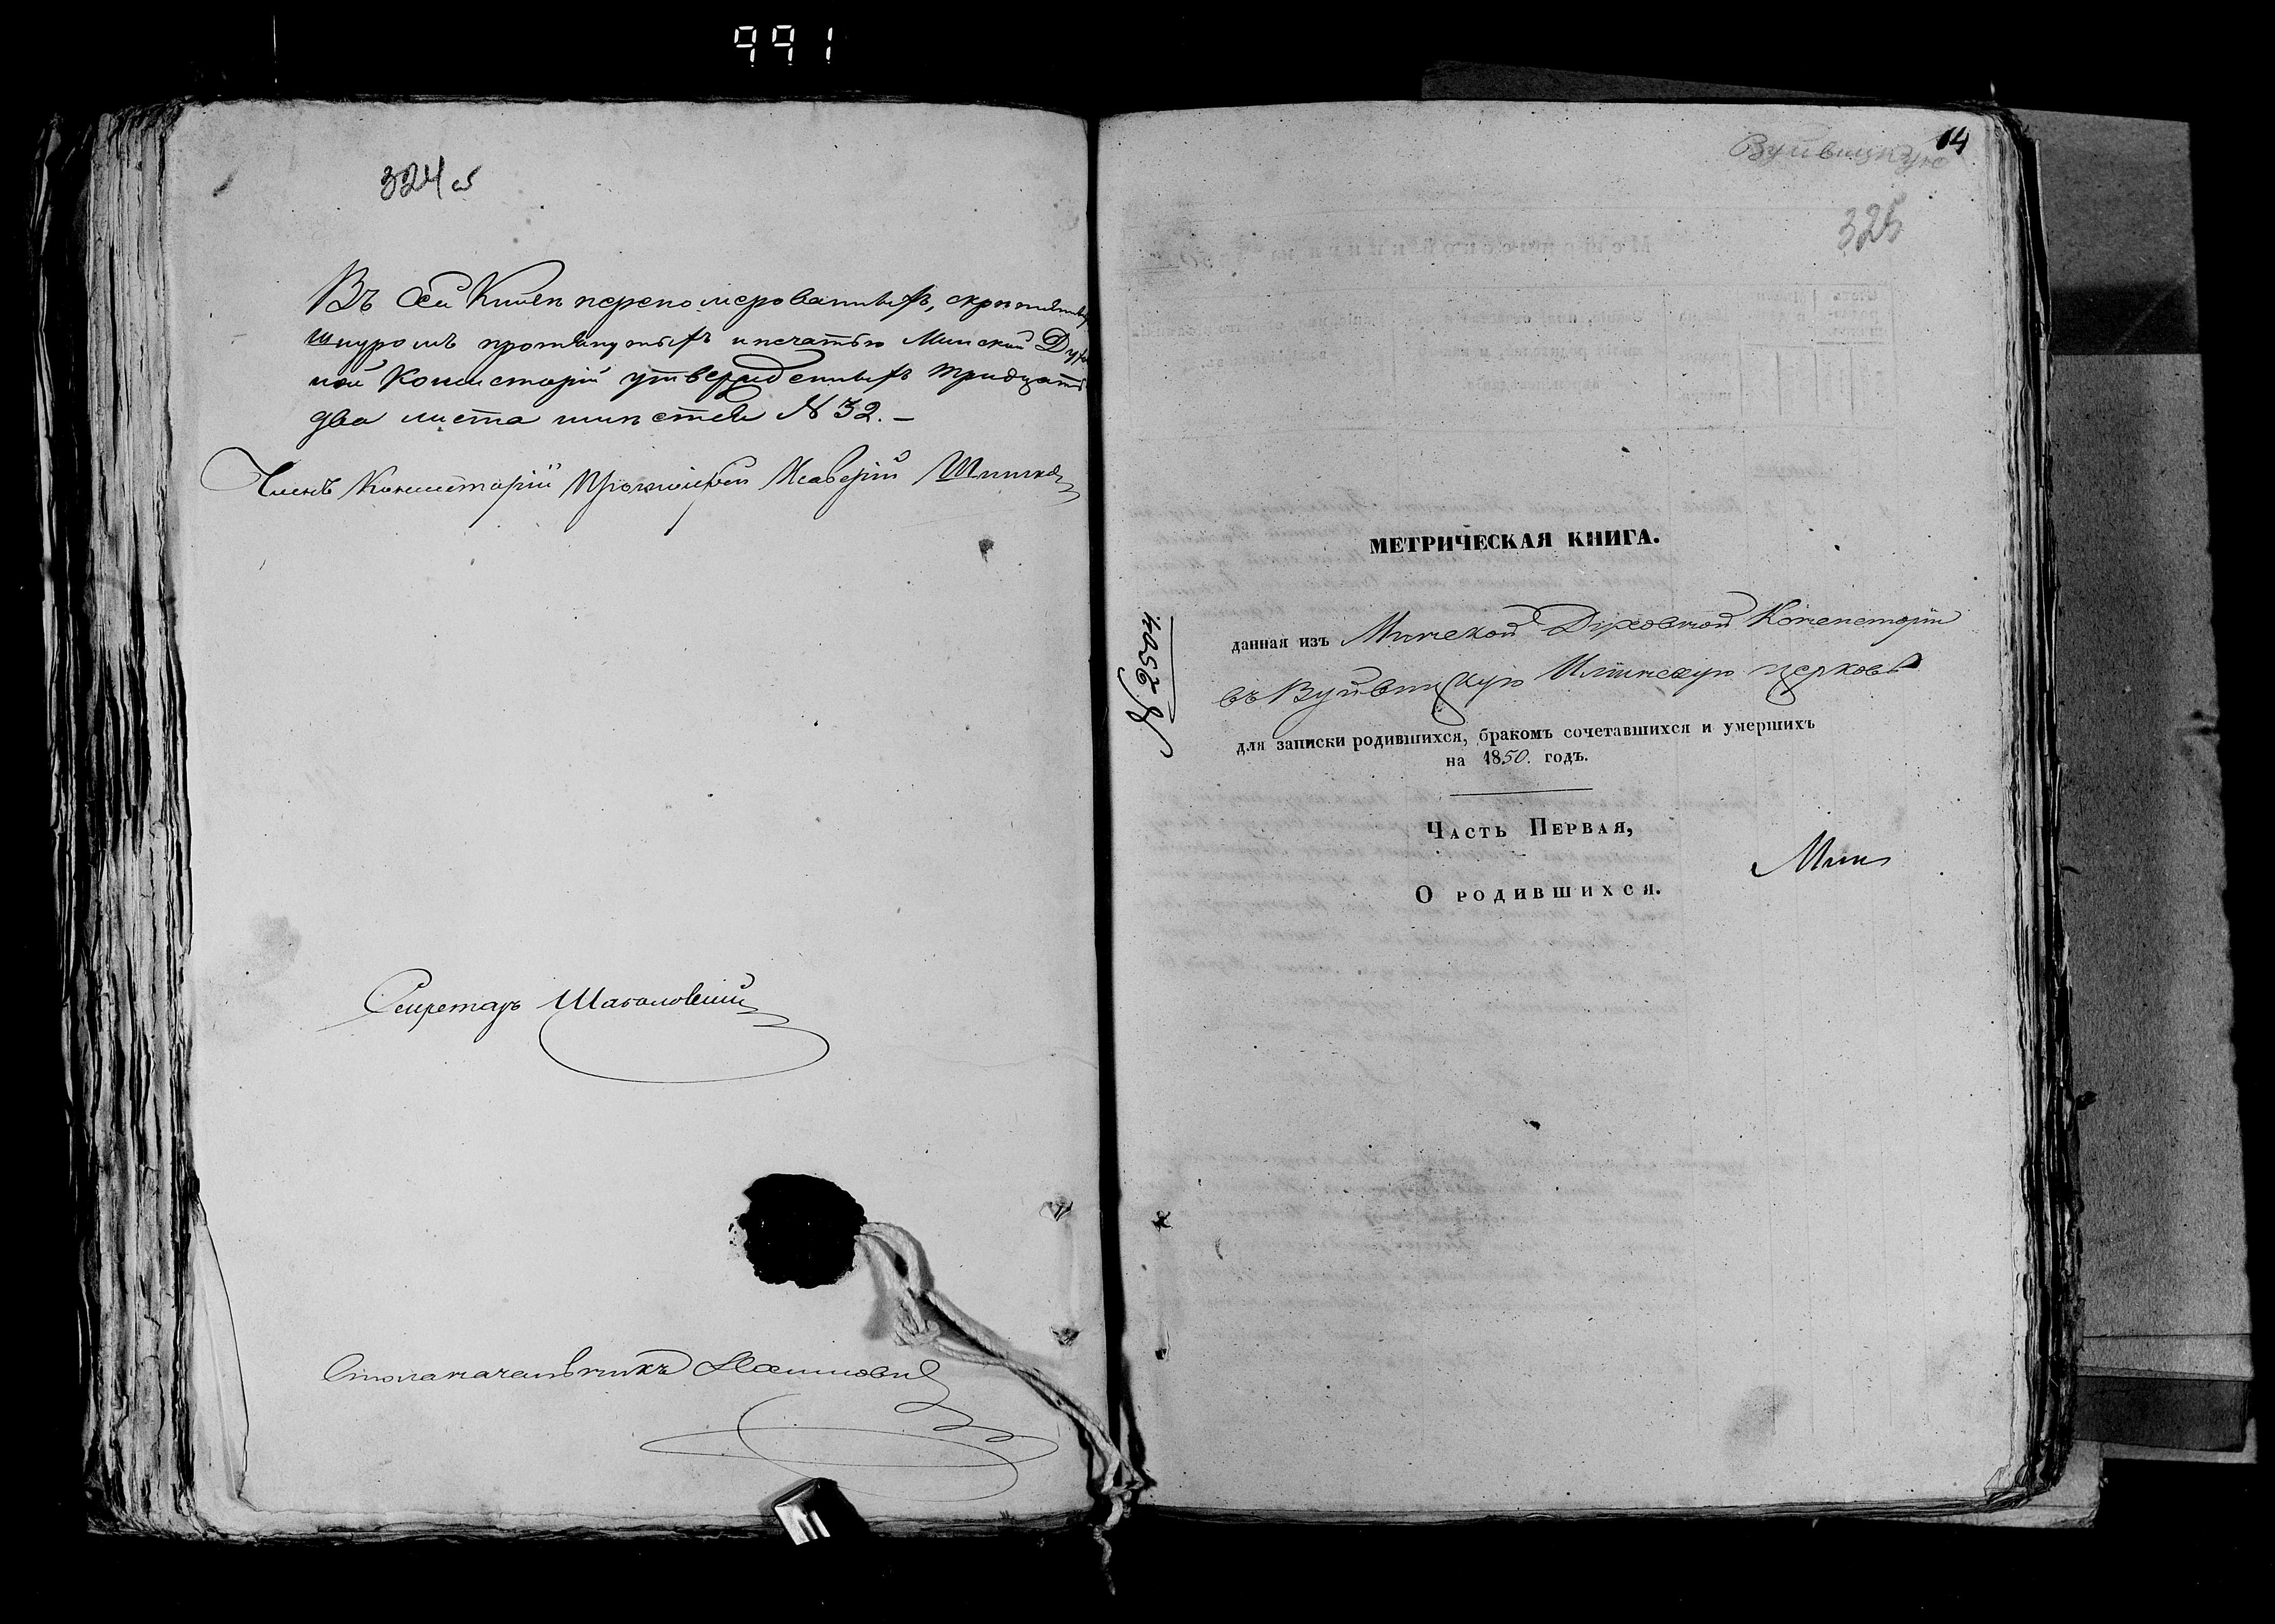 991
324 об
Въ сей Книгѣ перономерованныхъ, скрѣпленныхъ
шнуромъ протянутыхъ и печатью Минской Духов
ной Консисторіи утвержденныхъ тридцать
два листа шнъстей N 32. –
Членъ Консисторіи Протоіерей Ксаверій
Секретарь
Столоначальникъ
14
Вуйвицкую
325
МЕТРИЧЕСКАЯ КНИГА.
данная изъ Минской Духовной Консисторіи
въ Вуйвицкую Ильинскую церковь
для записки родившихся, бракомъ сочетавшихся и умершихъ
на 1850. годъ.
Часть Первая,
Мин
О родившихся.
№ 9504